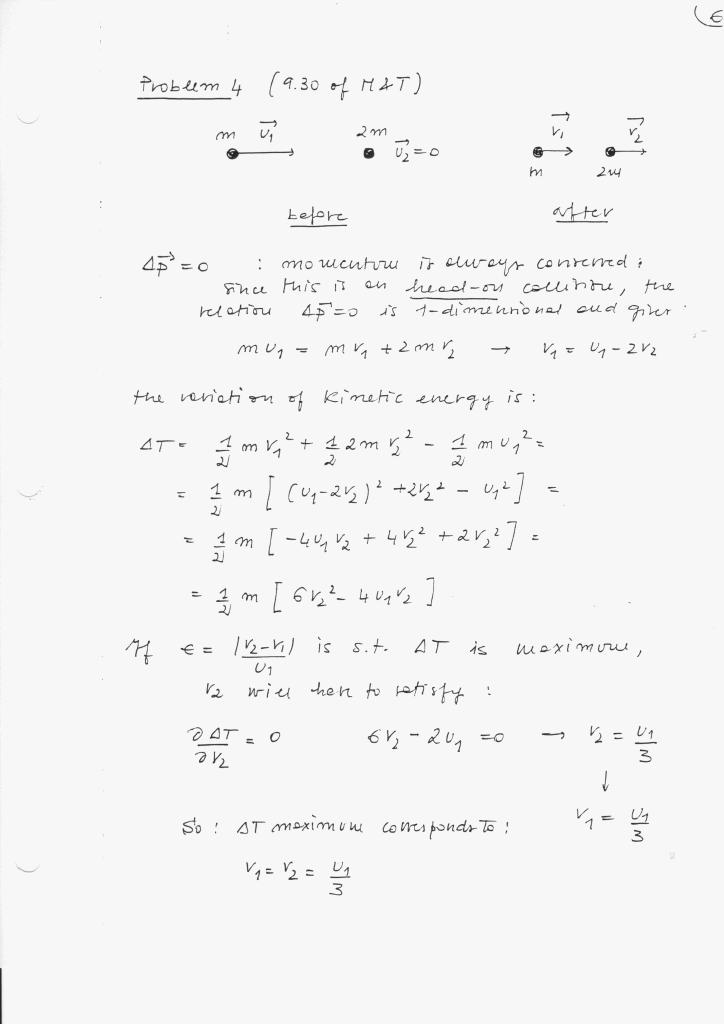 Problem 4 (9.30 of M&T)
m u⃗₁ 2m u⃗₂=0 v⃗₁ v⃗₂
m 2m
before after
Δp⃗=0 : momentum is always conserved;
since this is an head-on collision, the
relation Δp⃗=0 is 1-dimensional and gives
m u₁ = m v₁ + 2m v₂ → v₁ = u₁ - 2v₂
the variation of kinetic energy is:
ΔT = 1/2 m v₁² + 1/2 2m v₂² - 1/2 m u₁² =
= 1/2 m [ (u₁-2v₂)² +2v₂² - u₁² ] =
= 1/2 m [ -4u₁v₂ + 4v₂² + 2v₂² ] =
= 1/2 m [ 6v₂² - 4u₁v₂ ]
If ε = |v₂-v₁|/u₁ is s.t. ΔT is maximum,
v₂ will have to satisfy :
∂ΔT/∂v₂ = 0 6v₂ - 2u₁ =0 → v₂ = u₁/3
↓
So : ΔT maximum corresponds to : v₁ = u₁/3
v₁ = v₂ = u₁/3